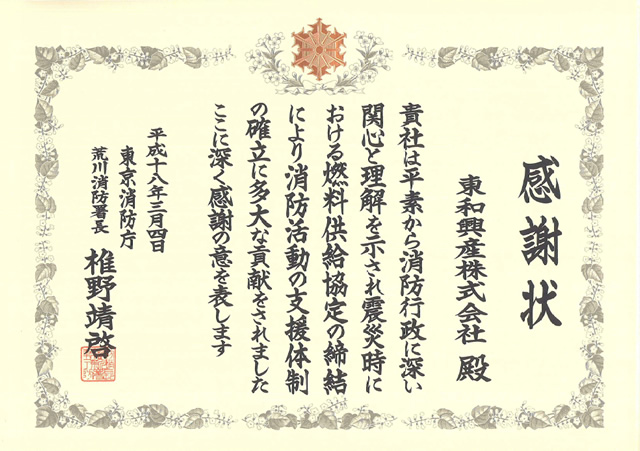 感謝状
東和興産株式会社 殿
貴社は平素から消防行政に深い
関心と理解を示され震災時に
おける燃料供給協定の締結
により消防活動の支援体制
の確立に多大な貢献をされました
ここに深く感謝の意を表します
平成十八年三月四日
東京消防庁
荒川消防署長
椎野靖啓